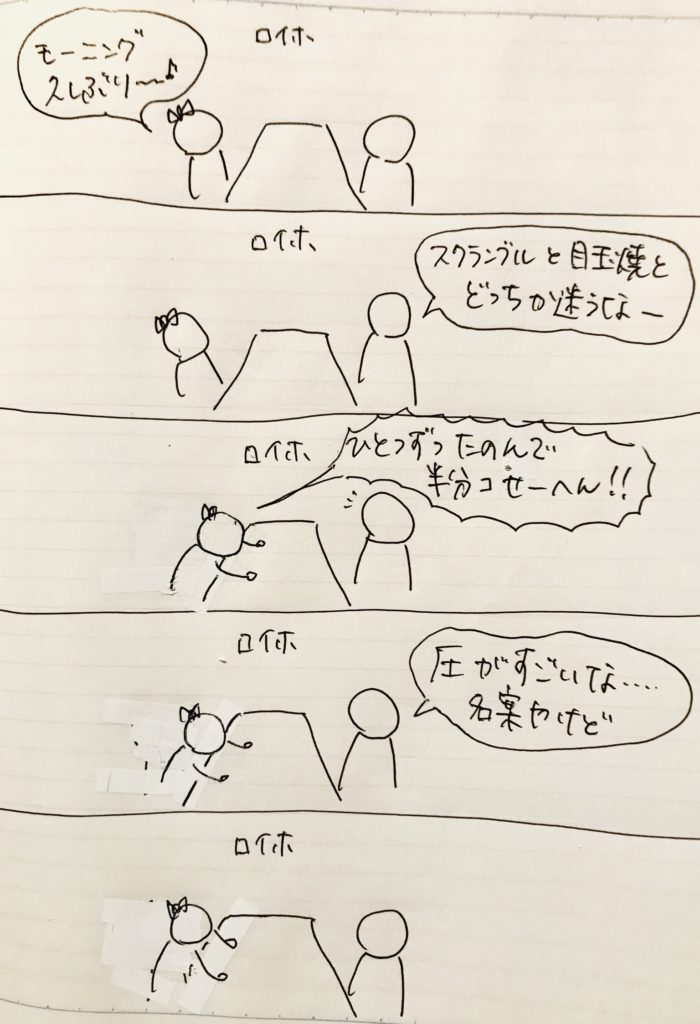 ロイホ
モーニング
久しぶり〜〜♪
ロイホ
スクランブルと目玉焼と
どっちか迷うなー
ロイホ
ひとつずつたのんで
半分コせーへん!!
ロイホ
圧がすごいな.....
名案やけど
ロイホ